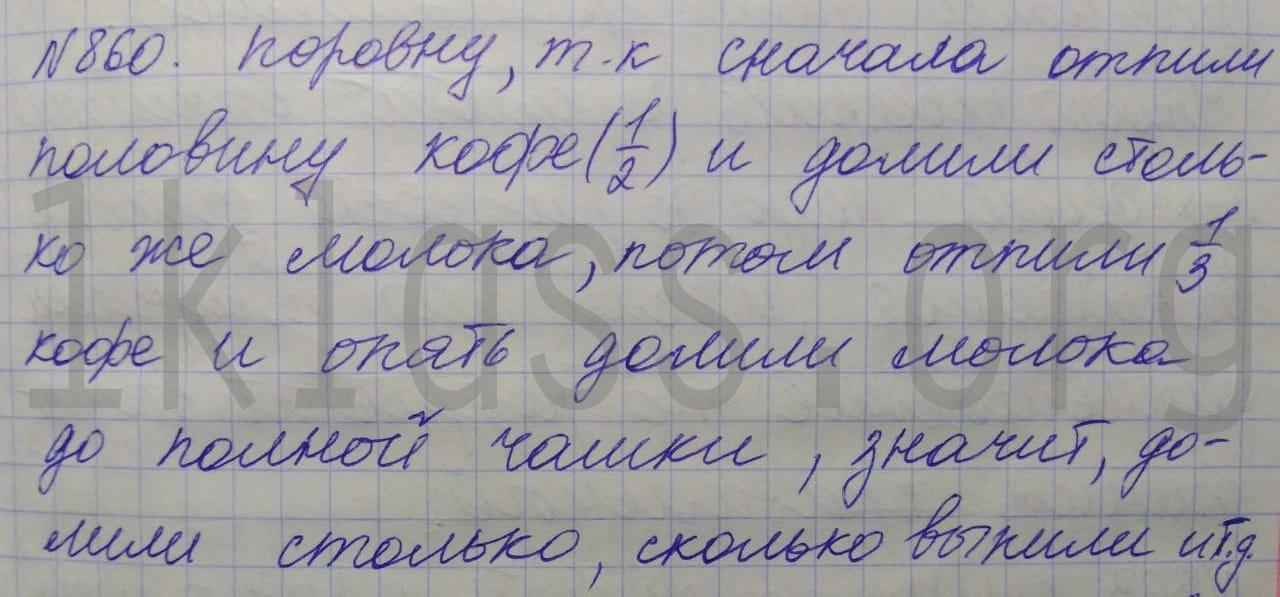 N860. поровну, т.к сначала отпили
половину кофе(1/2) и долили столь-
ко же молока, потом отпили 1/3
кофе и опять долили молока
до полной чашки, значит, до-
лили столько, сколько выпили и т.д.
1klass.org